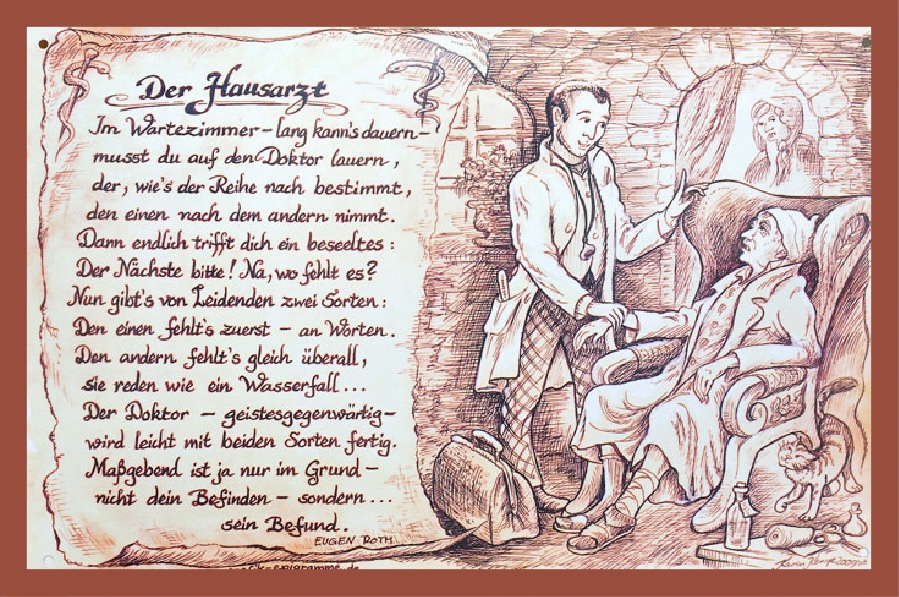 Der Hausarzt
Im Wartezimmer – lang kann's dauern –
musst du auf den Doktor lauern,
der, wie's der Reihe nach bestimmt,
den einen nach dem andern nimmt.
Dann endlich trifft dich ein beseeltes:
Der Nächste bitte! Na, wo fehlt es?
Nun gibt's von Leidenden zwei Sorten:
Den einen fehlt's zuerst – an Worten.
Den andern fehlt's gleich überall,
sie reden wie ein Wasserfall...
Der Doktor – geistesgegenwärtig –
wird leicht mit beiden Sorten fertig.
Maßgebend ist ja nur im Grund –
nicht dein Befinden – sondern...
sein Befund.
EUGEN ROTH